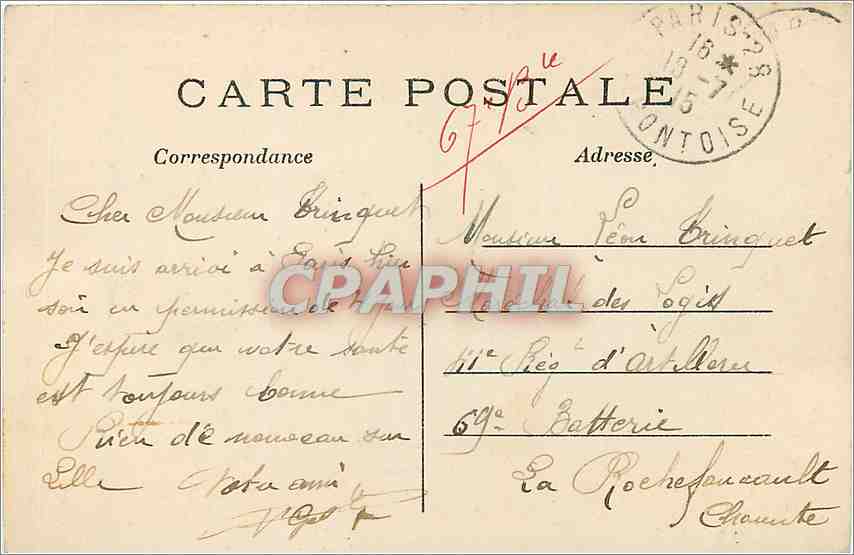 CARTE POSTALE
67e Bie
PARIS-28
16 *
18 - 7
15
PONTOISE
Correspondance
Adresse
Cher Monsieur Tringuet
Je suis arrivé à Paris hier
soir en permission de jours
J'espère que votre santé
est toujours bonne
Rien de nouveau sur
Lille Votre ami
Monsieur Léon Tringuet
Maréchal des Logis
Rég t d'Artillerie
69e Batterie
La Rochefoucault
Charente
CPAPHIL